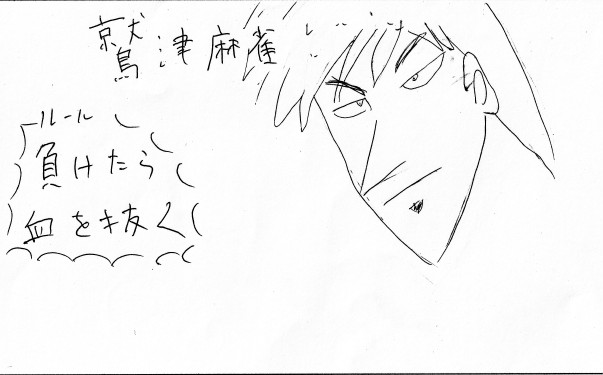 鷲津麻雀
ルール
負けたら
血を抜く